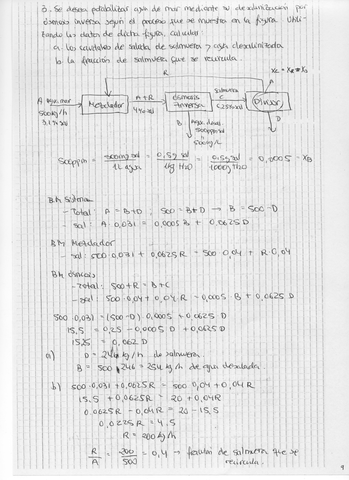 3- Se desea potabilizar agua de mar mediante su desalinización por
ósmosis inversa según el proceso que se muestra en la figura. Utili-
zando los datos de dicha figura, calcular
a. los caudales de salida de salmuera y agua desalinizada
b. la fracción de salmuera que se recircula.
R
XC = XR = XD
A Agua mar
500 kg/h
3.1% sal
Mezclador
A+R
4% sal
ósmosis
inversa
salmuera
C
6,25% sal
Divisor
B Agua desal.
500 ppm sal
D
500ppm = 500mg sal / 1L agua = 0,5g sal / 1kg H2O = 0,5g sal / 1000g H2O = 0,0005 - XB
BM Sistema
- Total: A = B+D ; 500 = B+D → B = 500-D
- Sal: A·0,031 = 0,0005 B + 0,0625 D
BM Mezclador
- Sal: 500·0,031 + 0,0625 R = 500·0,04 + R·0,04
BM ósmosis
- Total: 500+R = B+C
- Sal: 500·0,04 + 0,04 R = 0,0005·B + 0,0625
500·0,031 = (500-D)·0,0005 + 0,0625 D
15,5 = 0,25 - 0,0005 D + 0,0625 D
15,25 = 0,062 D
a) D = 246 kg/h de salmuera.
B = 500-246 = 254 kg/h de agua desalada.
b) 500·0,031 + 0,0625 R = 500·0,04 + 0,04 R
15,5 + 0,0625 R = 20 + 0,04 R
0,0625 R - 0,04 R = 20 - 15,5
0,0225 R = 4,5
R = 200 kg/h
R/A = 200/500 = 0,4 → fracción de salmuera que se
recircula.